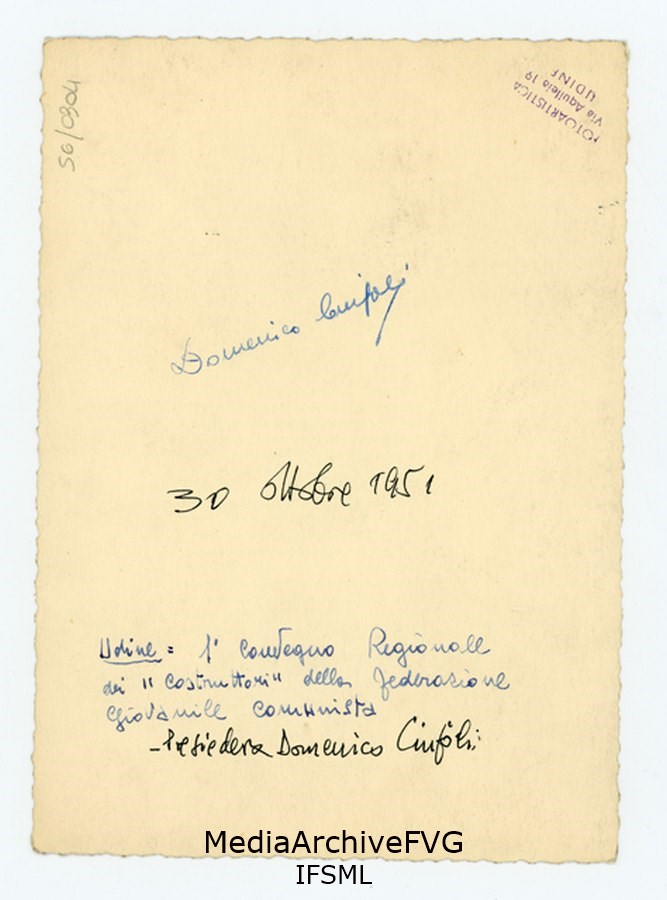 56/0904
FOTOARTISTICA
Via Aquileia 19
UDINE
Domenico Cinfoli
30 ottobre 1951
Udine = 1° Convegno Regionale
dei "Costruttori" della Federazione
Giovanile Comunista
- Presiedeva Domenico Cinfoli:
MediaArchiveFVG
IFSML